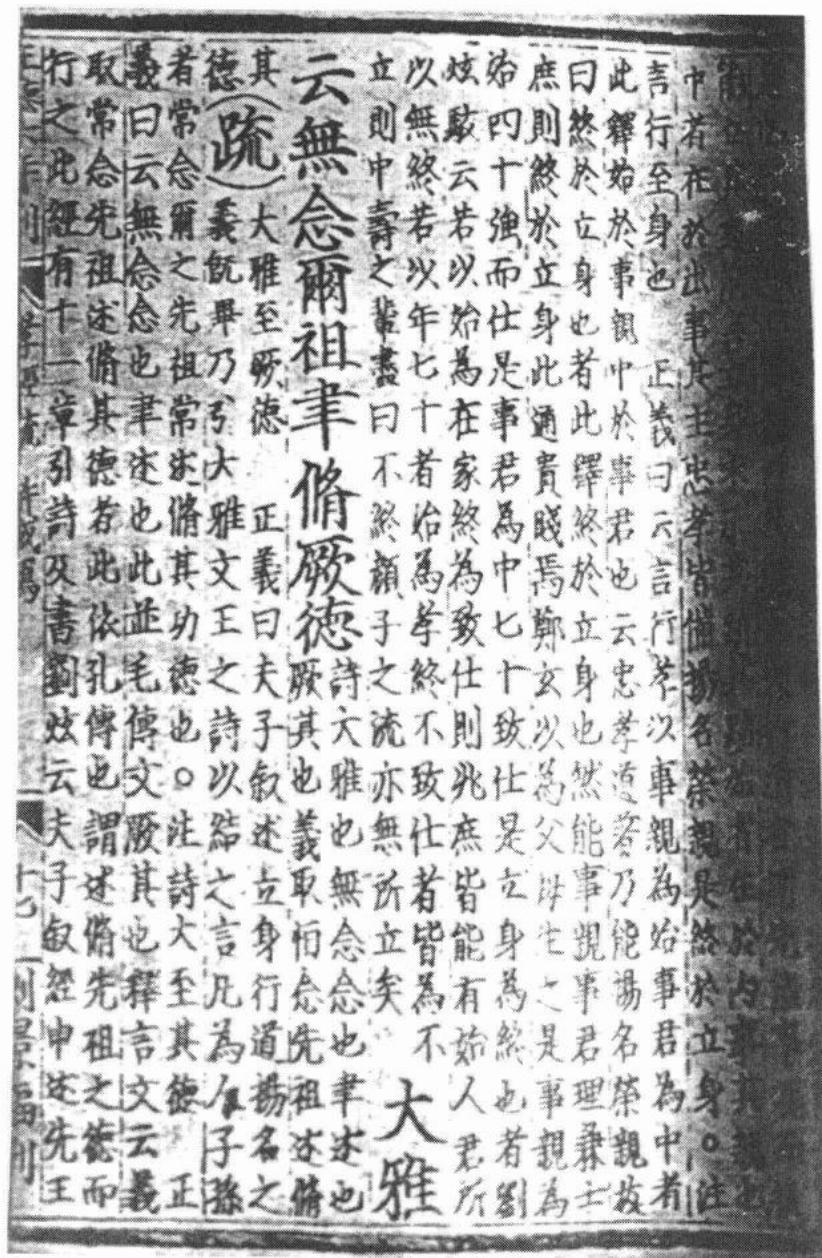 中若在於出事其主忠孝皆備揚名榮親是終於立身○注
言行至身也　正義曰云言行孝以事親為始事君為中者
此釋始於事親中於事君也云忠孝道著乃能揚名榮親故
曰終於立身也者此釋終於立身也然能事親事君理兼士
庶則終於立身此通貴賤焉鄭玄以為父母生之是事親為
始四十強而仕是事君為中七十致仕是立身為終也者劉
炫駁云若以始為在家終為致仕則兆庶皆能有始人君所
以無終若以年七十者始為孝終不致仕者皆為不
立則中壽之輩盡曰不終顏子之流亦無所立矣
大雅
云無念爾祖聿脩厥德
詩大雅也無念念也聿述也
厥其也義取恒念先祖述脩
其
德
(疏)
大雅至厥德　正義曰夫子敘述立身行道揚名之
義既畢乃引大雅文王之詩以結之言凡為人子孫
者常念爾之先祖常述脩其功德也○注詩大至其德　正
義曰云無念念也聿述也此並毛傳文厥其也釋言文云義
取常念先祖述脩其德者此依孔傳也謂述脩先祖之德而
行之此經有十一章引詩及書劉炫云夫子敘經申述先王